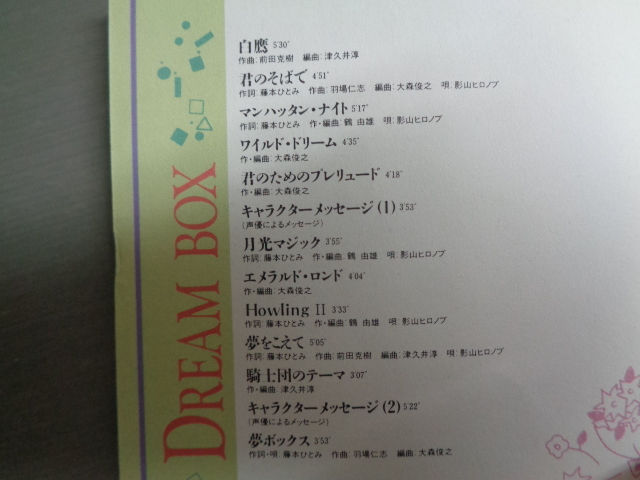 DREAM BOX
白鷹 5'30"
作曲:前田克樹 編曲:津久井淳
君のそばで 4'51"
作詞:藤本ひとみ 作曲:羽場仁志 編曲:大森俊之 唄:影山ヒロノブ
マンハッタン・ナイト 5'17"
作詞:藤本ひとみ 作・編曲:鶴 由雄 唄:影山ヒロノブ
ワイルド・ドリーム 4'35"
作・編曲:大森俊之
君のためのプレリュード 4'18"
作・編曲:大森俊之
キャラクターメッセージ(1) 3'53"
(声優によるメッセージ)
月光マジック 3'55"
作詞:藤本ひとみ 作・編曲:鶴 由雄 唄:影山ヒロノブ
エメラルド・ロンド 4'04"
作・編曲:大森俊之
Howling II 3'33"
作詞:藤本ひとみ 作・編曲:鶴 由雄 唄:影山ヒロノブ
夢をこえて 5'05"
作詞:藤本ひとみ 作曲:前田克樹 編曲:津久井淳 唄:影山ヒロノブ
騎士団のテーマ 3'07"
作・編曲:津久井淳
キャラクターメッセージ(2) 5'22"
(声優によるメッセージ)
夢ボックス 3'53"
作詞・唄:藤本ひとみ 作曲:羽場仁志 編曲:大森俊之